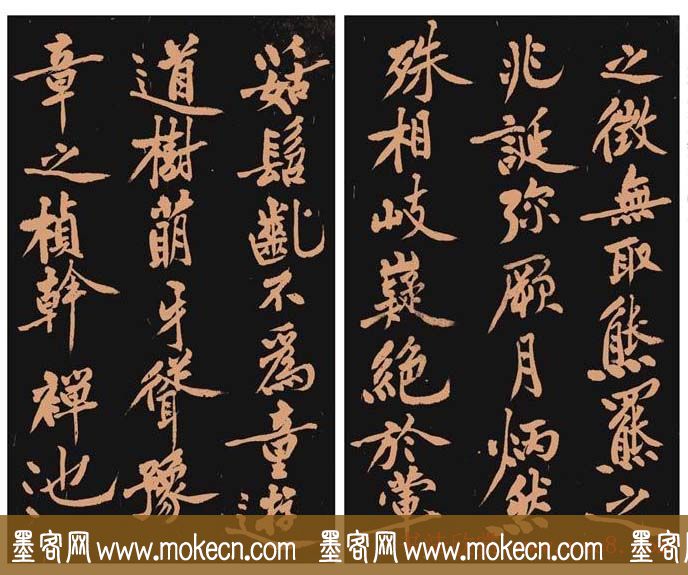 之徵無取熊羆之
兆誕弥厥月炳然
殊相岐嶷絕於葷
茹髫齔不爲童遊
道樹萌牙聳豫
章之楨幹禪池
墨客网 www.mokecn.com 墨客网 www.mokecn.com 墨客网